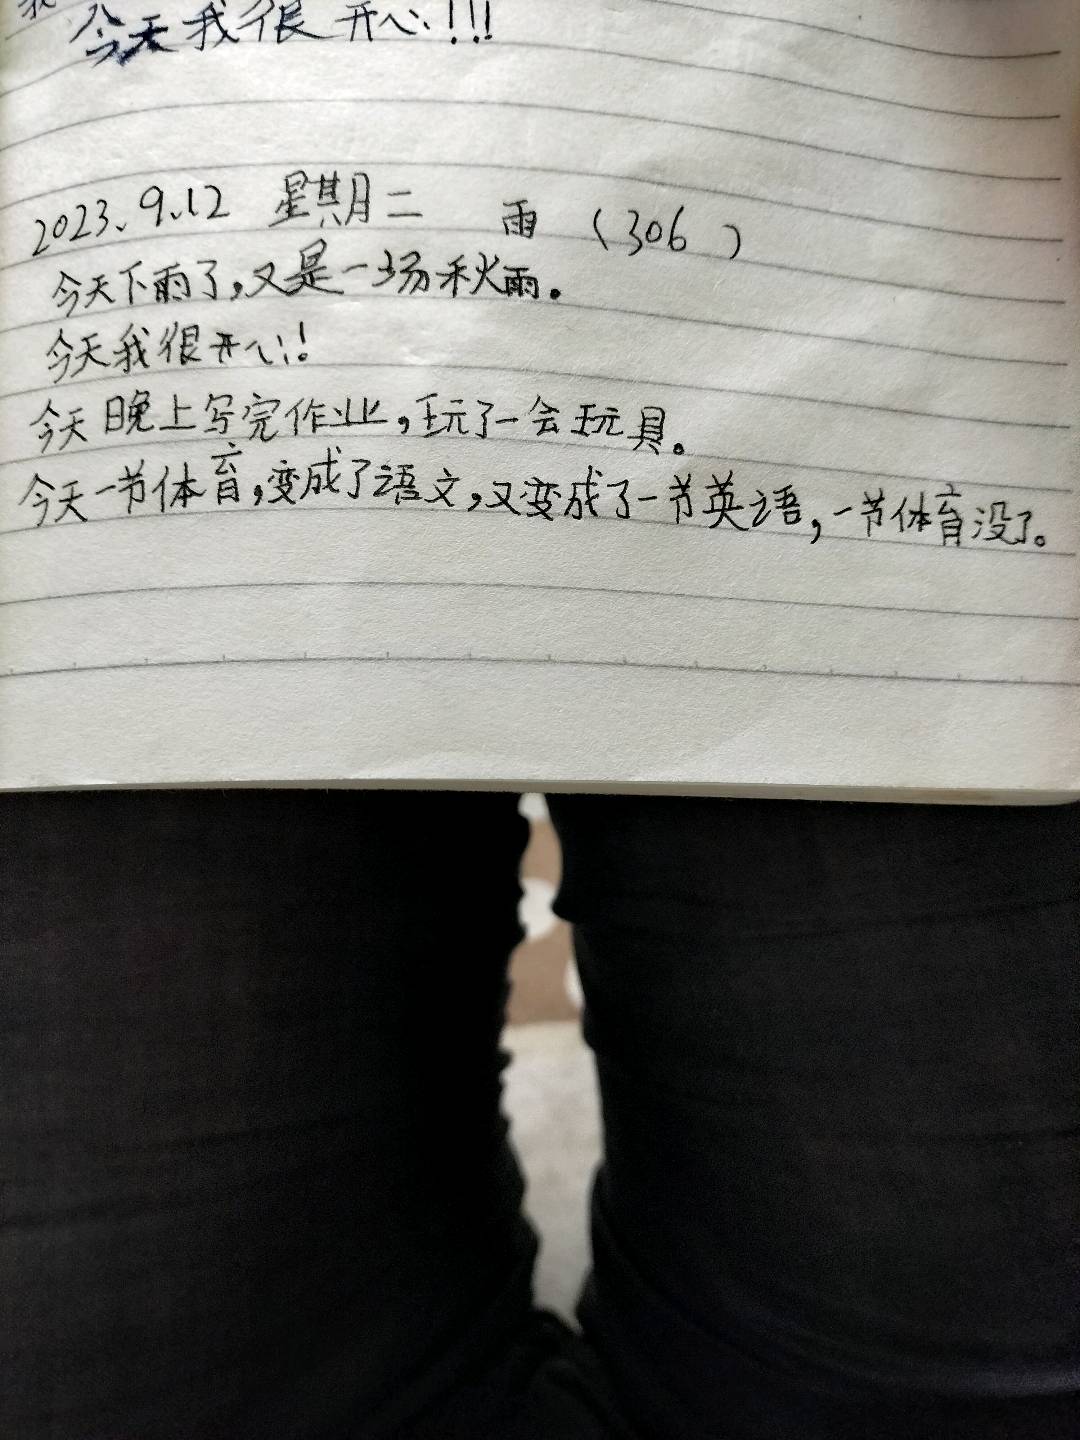 我
今天我很开心!!!
2023.9.12 星期二 雨 (306)
今天下雨了,又是一场秋雨。
今天我很开心!
今天晚上写完作业,玩了一会玩具。
今天一节体育,变成了语文,又变成了一节英语,一节体育没了。